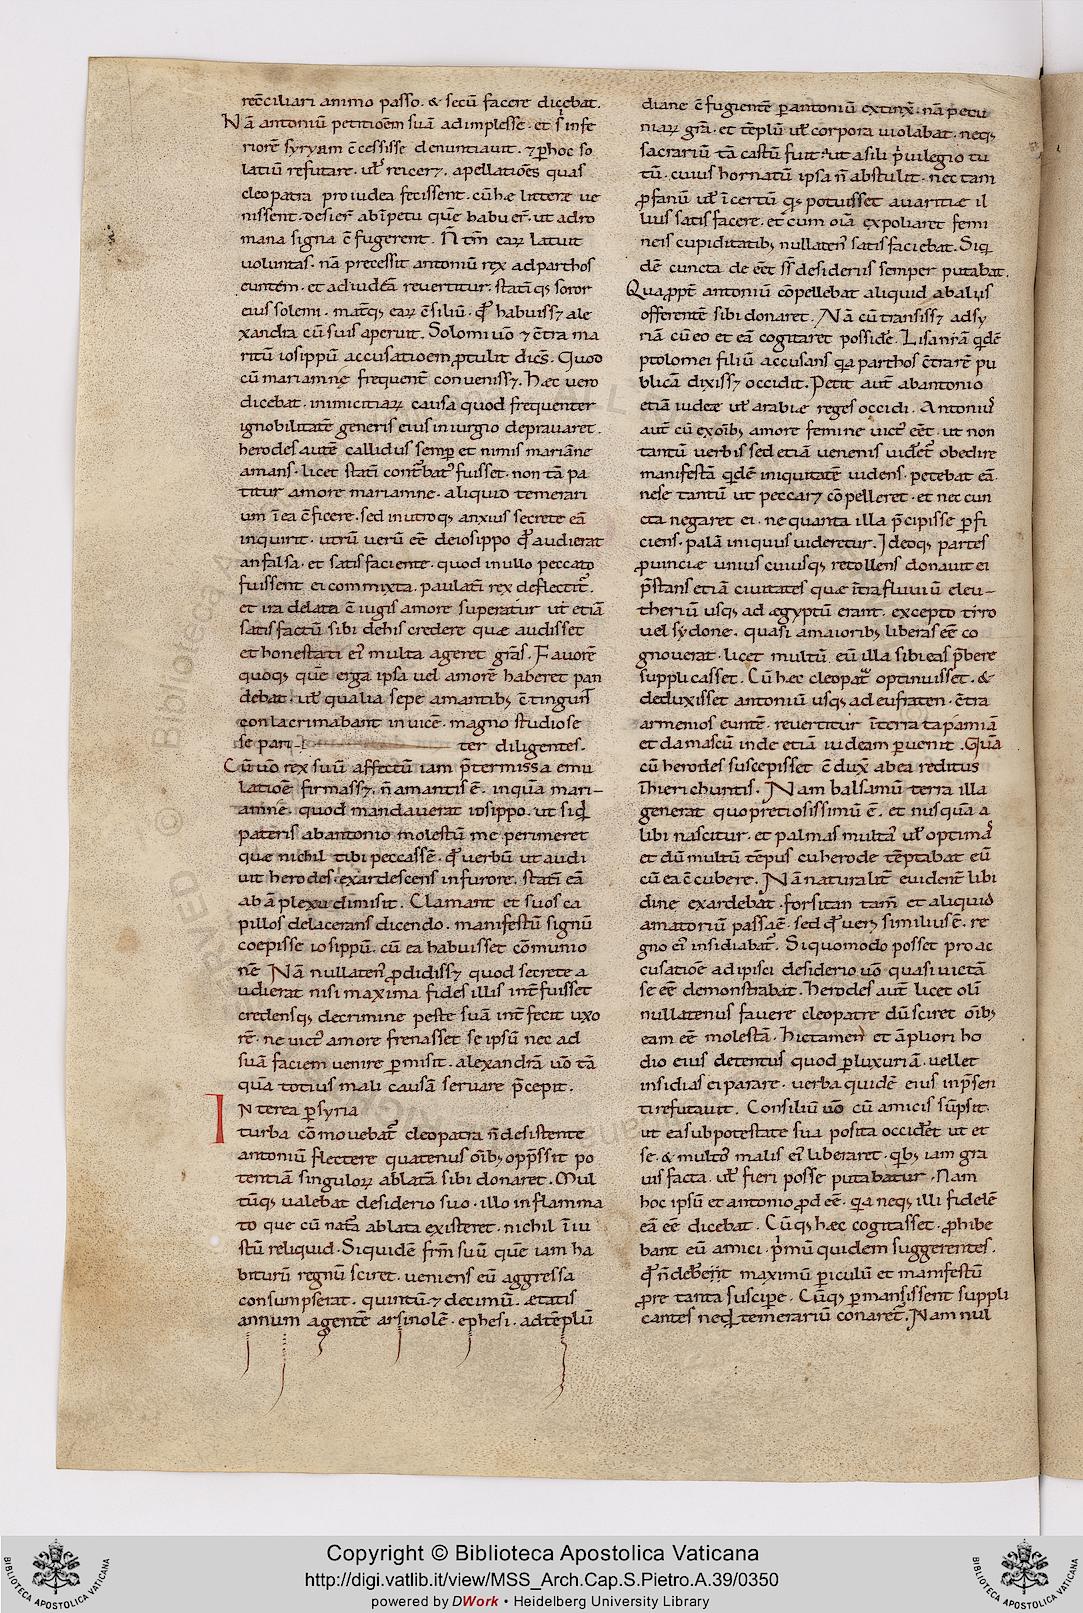 recc̄iliari animo passo · & secū facere dicebat.
Nā antoniū petitioēm suā adimplesse · et s; infe
riorē syryam c̄cessisse denuntiavit · ⁊ ꝑhoc so
latiū refutare · ul' reicerꝫ · apellatiōes quas
cleopatra pro iudea fecissent · cū hæ litteræ ue
nissent · desier̄
mana signa c̄fugerent. N̄ tm̄ earꝝ latuit
uoluntas · nā precessit antoniū rex ad parthos
euntem · et ad iudeā revertitur · statīqꝫ soror
eius solemi · mat̄qꝫ earꝝ c̄siliū · qd̄ habuissꝫ ale
xandra cū suis aperuit. Solomi uō ⁊ c̄tra ma
ritū iosippū accusatioem ꝓtulit dic̄s. Quod
cū mariamne frequent̄ convenissꝫ. Hæc vero
dicebat · inimicitiarꝝ causa quod frequenter
ignobilitatē generis eius iniurgio depravaret.
herodes autē callidus semꝑ et nimis mariāne
amans · licet statī cont̄bat' fuisset · non tā pa
titur amore mariamne · aliquid temerari
um ī ea c̄ficere · sed in utroqꝫ anxius secrete eā
inquirit · utrū verū eē̄ deiosippo qd̄ audierat
an falsa · et satisfaciente · quod in ullo peccato
fuissent ei commixta · paulatī rex deflectit̄.
et ira delata c̄iugis amore superatur ut etiā
satisfactū sibi dehis credere quæ audisset
et honestati ei' multa ageret gr̄as. Favorē
quoqꝫ quē erga ipsa vel amorē haberet pan
debat · ul' qualia sepe amantibꝫ c̄tingunt
conlacrimabant in vicē · magno studiose
se pari- ter diligentes.
Cū uō rex suū affectū iam p̄termissa emu
latioē firmassꝫ · n̄ amantis ē · inqua mari-
amnē · quod mandaverat iosippo · ut siqd̄
pateris abantonio molestū me perimeret
quæ nichil tibi peccassē · qd̄ verbū ut audi
uit herodes · exardescens infurore · statī eā
ab āplexu dimisit. Clamant et suos ca
pillos delacerans dicendo · manifestū signū
coepisse iosippū · cū ea habuisset cōmunio
nē Nā nullaten' ꝓdidissꝫ quod secrete a
udierat nisi maxima fides illis int̄fuisset
credensqꝫ decrimine peste suā int̄fecit uxo
rē · ne vict' amore frenasset se ipsū nec ad
suā faciem venire ꝑmisit · alexandrā uō tā
quā totius mali causā servare p̄cepit.
Nterea ꝑ syria
turba cōmovebat̄ cleopatra n̄ desistente
antoniū flectere quatenus oībꝫ opp̄ssit po
tentiā singulorꝝ ablatā sibi donaret. Mul
tūqꝫ valebat desiderio suo · illo inflamma
to que cū nat̄a ablata existeret · nichil īiu
stū reliquid · Siquidē frm̄ suū quē iam ha
biturū regnū sciret · veniens eū aggressa
consumpserat · quintū ⁊ decimū · ætatis
annum agentē arsinoēn · ephesi · ad tēplū
diane c̄fugientē ꝑ antoniū extinx̄ · nā pecu
niarꝝ gr̄a · et tēplū ul' corpora violabat · neqꝫ
sacrariū tā castū fuit ut asili p̄uilegio tu
tū · cuius hornatū ipsa n̄ abstulit · nec tam
ꝓfanū ul' īcertū qs potuisset avaritiæ il
lius satis facere · et cum oīa expoliaret femi
neis cupiditatibꝫ nullaten' satis faciebat. Siqi
dē cuncta de eē̄t desideriis semper putabat.
Quaꝓpt̄ antoniū cōpellebat aliquid ab aliis
offerentē sibi donaret. Nā cū transissꝫ adsy
riā cū eo et eā cogitaret possidē̄. Lisaniā qdē
ptolomei filiū accusans qa parthos c̄trarē pu
blicā dixissꝫ occidit. Petit aut̄ abantonio
etiā iudeæ ul' arabiæ reges occidi. Antoniu'
aut̄ cū ex oībꝫ amore femine vict' eēt · ut non
tantū verbis sed etiā venenis vider̄et' obedire
manifestā qdē iniquitatē videns · petebat eā
nese tantū ut peccarꝫ cōpelleret · et nec cun
cta negaret ei · ne quanta illa p̄cipisse ꝑfi
ciens · palā iniquus videretur. Ideoqꝫ partes
ꝓvinciæ unius cuiusqꝫ recollens donavit ei
p̄stans etiā civitates quæ ītra fluviū eleu-
theriū usqꝫ ad ægyptū erant · excepto tiro
vel sydone · quasi amaioribꝫ liberas eē̄ co
gnoverat · licet multū eū illa sibi eas p̄bere
supplicasset. Cū hæc cleopatra optinuisset · &
deduxisset antoniū usqꝫ ad eufraten · c̄tra
armenios euntē · revertitur ī terra ta pamiā
et damascū inde etiā iudeam ꝑvenit · Quā
cū herodes suscepisset c̄dux̄ ab ea reditus
ihierichuntis. Nam balsamū terra illa
generat quo pretiosissimū ē · et nusquā a
libi nascitur · et palmas multas ul' optimas
et dū multū tēpus cuherode tēptabat eū
cū ea c̄cubere. Nā naturalit̄ evident̄ libi
dine exardebat · forsitan tam̄ et aliquid
amatoriū passa ē · sed qd̄ veris similius ē · re
gno ei' insidiabat̄. Si quomodo posset pro ac
cusatioē adipisci desiderio uō quasi victā
se eē̄ demonstrabat. herodes aut̄ licet olī
nullatenus favere cleopatre dū sciret oībꝫ
eam eē̄ molestā. hic tamen et āpliori ho
dio eius detentus quod ꝑ luxuriā · vellet
insidias ei parare · verba quidē eius inp̄sen
ti refutavit. Consiliū uō cū amicis sūpsit.
ut ea sub potestate sua posita occider̄et ut et
se · & multos malis ei' liberaret · qībꝫ iam gra
vis facta · ul' fieri posse putabatur · Nam
hoc ipsū et antonio ꝓdeē̄ · qa neqꝫ illi fidelē
eā eē̄ dicebat. Cūqꝫ hæc cogitasset · ꝓhibe
bant eū amici · p̄mū quidem suggerentes.
qd̄ n̄ deberet maximū ꝑiculū et manifestū
ꝓ re tanta suscipe. Cūqꝫ ꝑmansissent suppli
cantes neqd̄ temerariū conaret̄. Nam nul
Copyright © Biblioteca Apostolica Vaticana
http://digi.vatlib.it/view/MSS_Arch.Cap.S.Pietro.A.39/0350
powered by DWork • Heidelberg University Library